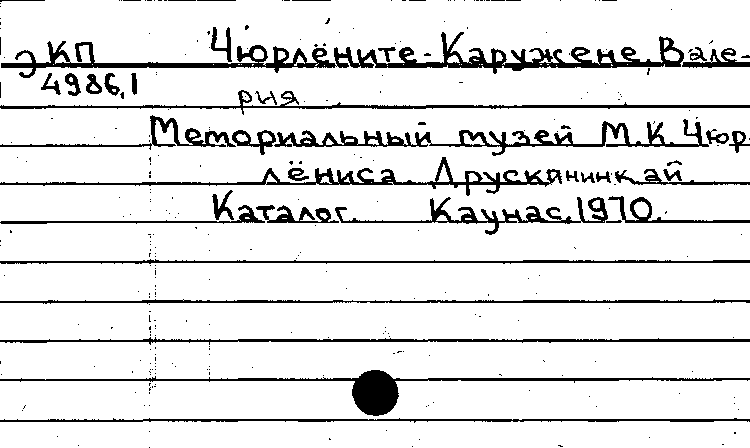 Э КП Чюрлёните-Каружене, Вале-
4986,1 рия
Мемориальный музей М.К. Чюр-
лёниса. Друскининкай.
Каталог. Каунас, 1970.